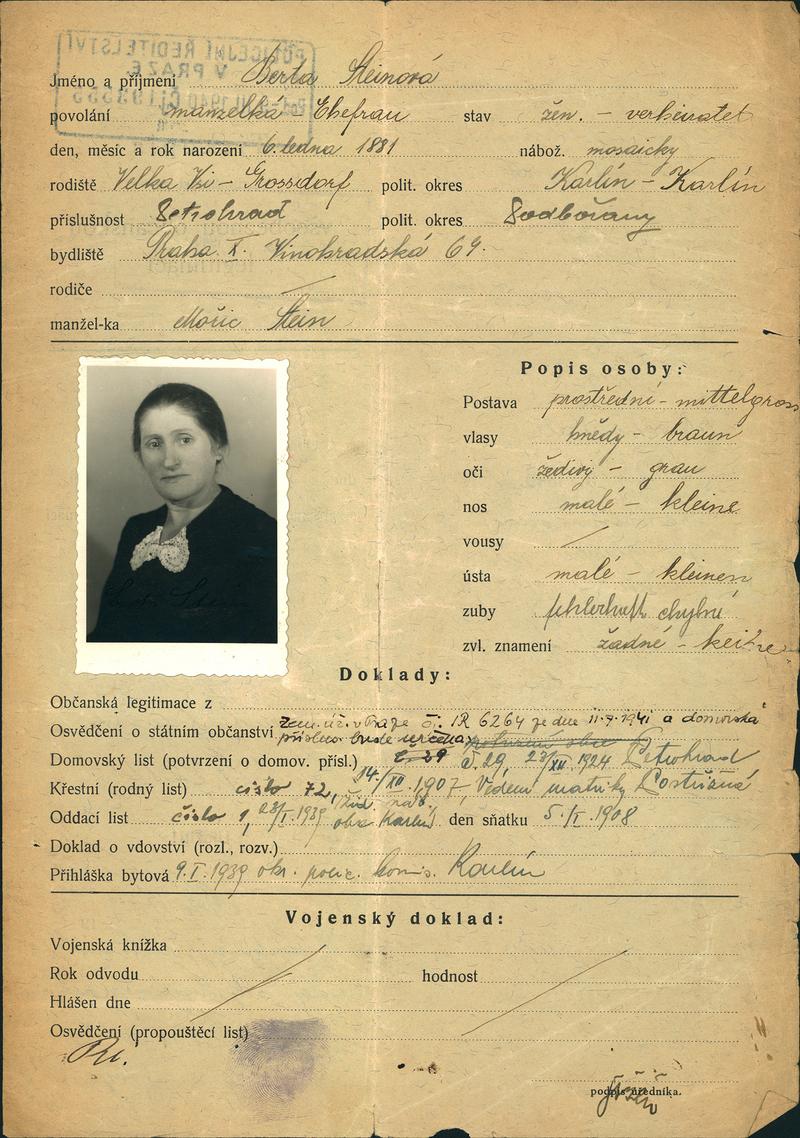 POLICEJNÍ ŘEDITELSTVÍ
V PRAZE
Jméno a příjmení Berta Steinová
povolání manželka - Ehefrau stav žen. - verheiratet
den, měsíc a rok narození 6. ledna 1881 nábož. mosaický
rodiště Velká Ves - Grossdorf polit. okres Karlín - Karlín
příslušnost Petrohrad polit. okres Podbořany
bydliště Praha X. Vinohradská 69.
rodiče
manžel-ka Mořic Stein
Popis osoby:
Postava prostřední - mittelgross
vlasy hnědý - braun
oči šedivý - grau
nos malé - kleine
vousy
ústa malé - kleinen
zuby fehlerhaft chybné
zvl. znamení žádné - keine
Doklady:
Občanská legitimace z
Osvědčení o státním občanství zem. úř. v Praze č. IR 6264 ze dne 11.7.1941 a domovská
příslušn. bude určena
Domovský list (potvrzení o domov. přísl.) č. 29, 23/XII. 1924 Petrohrad
Křestní (rodný list) číslo 72, 14/XII. 1907, Vedení matriky
Oddací list číslo 1, 23/I. 1939 žid. náb. obec Karlín den sňatku 5./I. 1908
Doklad o vdovství (rozl., rozv.)
Přihláška bytová 9.I.1939 okr. polic. komis. Karlín
Vojenský doklad:
Vojenská knížka
Rok odvodu hodnost
Hlášen dne
Osvědčení (propouštěcí list)
podpis úředníka.